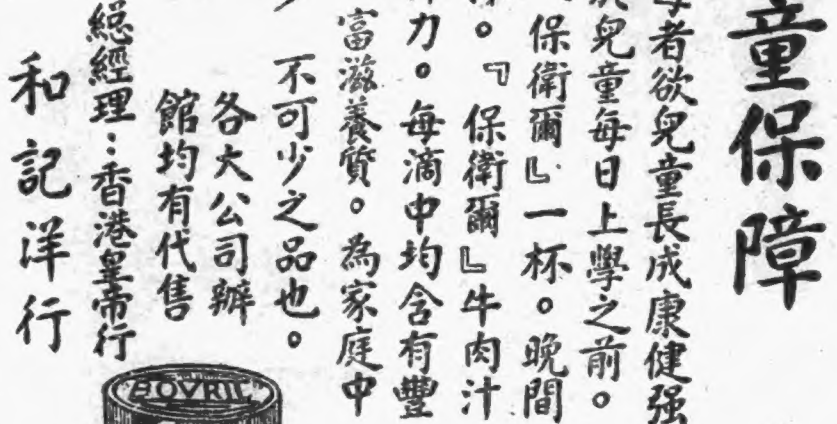 童保障
者欲兒童長成康健强
兒童每日上學之前。
保衛爾』一杯。晚間
。『保衛爾』牛肉汁
力。每滴中均含有豐
富滋養質。為家庭中
不可少之品也。
各大公司辦
館均有代售
總經理：香港皇帝行
和記洋行
BOVRIL